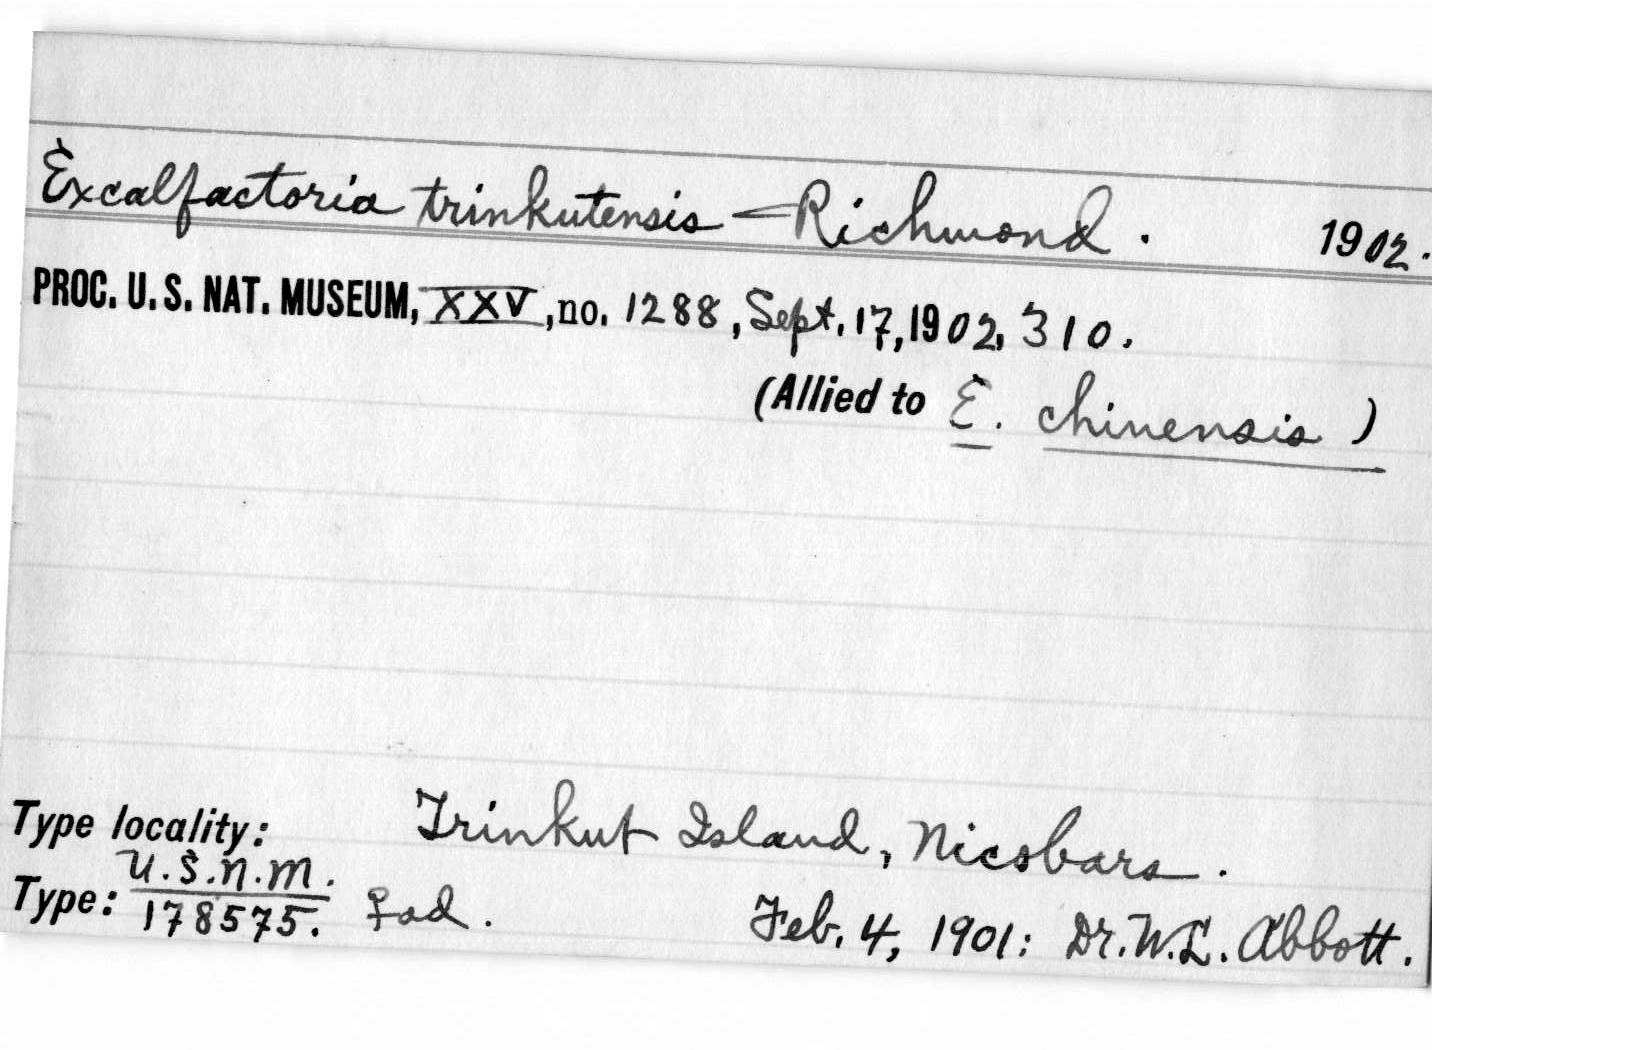 Excalfactoria trinkutensis — Richmond. 1902.
PROC. U. S. NAT. MUSEUM, XXV, no. 1288, Sept. 17, 1902, 310.
(Allied to E. chinensis)
Type locality: Trinkut Island, Nicobars.
U.S.N.M.
Type: 178575. ♀ ad. Feb. 4, 1901: Dr. W. L. Abbott.